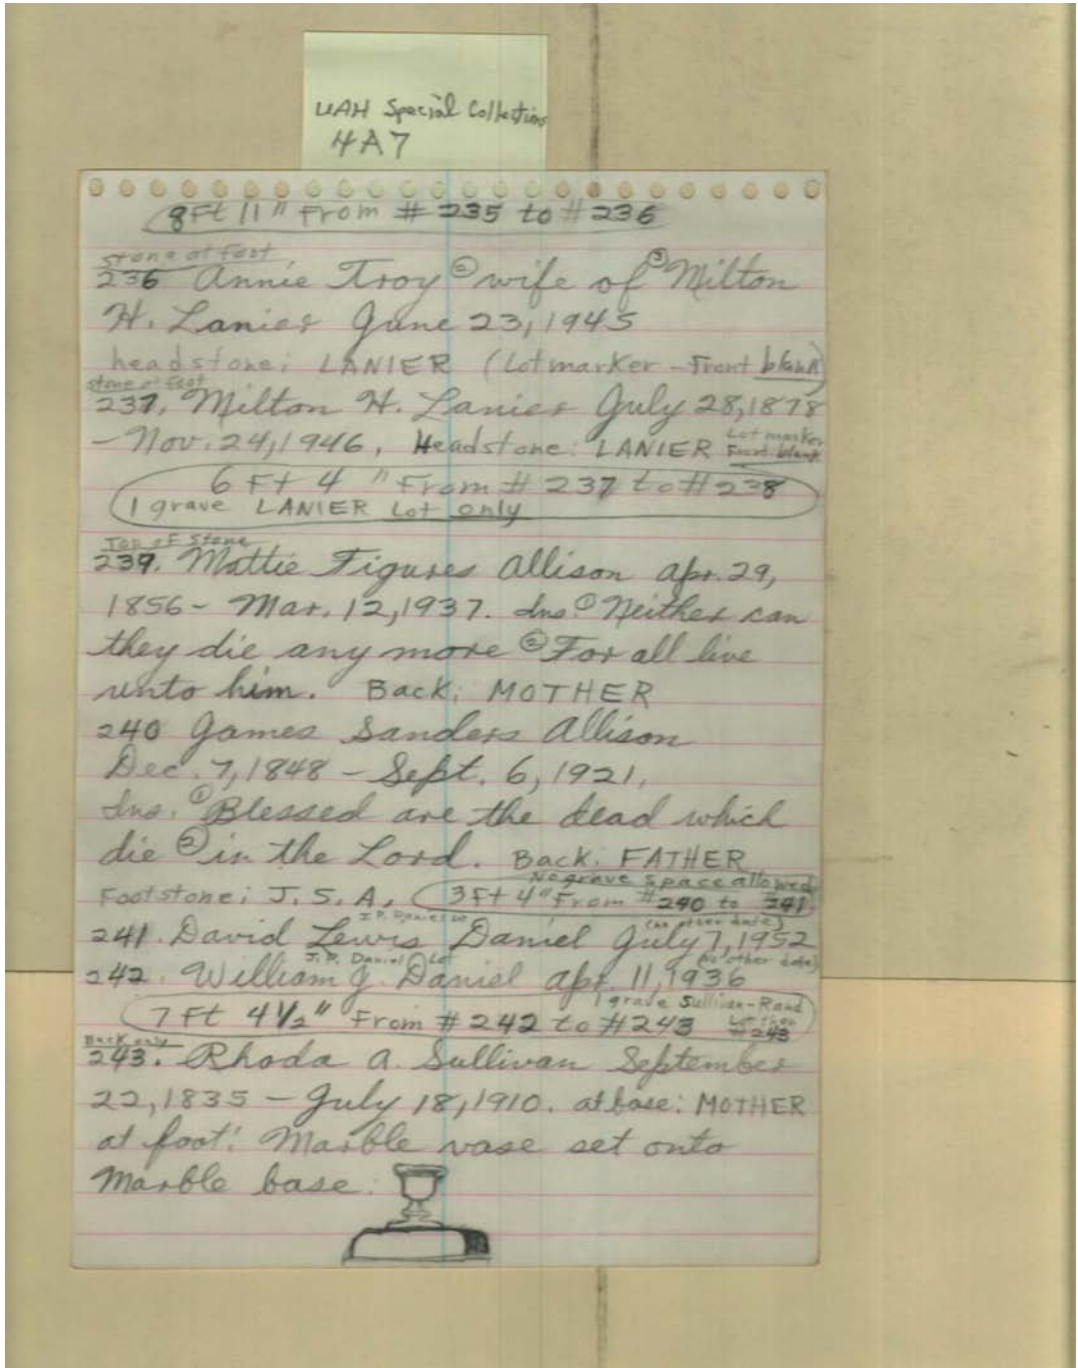 UAH Special Collections
4A7
8Ft 11" From # 235 to # 236
stone at foot
236 Annie Troy ② wife of ③ Milton
H. Lanier June 23, 1945
headstone: LANIER (Lot marker - Front blank)
stone at foot
237. Milton H. Lanier July 28, 1878
- Nov. 24, 1946, Headstone: LANIER Lot marker
Front blank
6 Ft 4 " From # 237 to # 238
1 grave LANIER Lot only
Top of Stone
239. Mattie Figures Allison Apr. 29,
1856 - Mar. 12, 1937. Ins. ① Neither can
they die any more ② For all live
unto him. Back: MOTHER
240 James Sanders Allison
Dec. 7, 1848 - Sept. 6, 1921.
Ins. ① Blessed are the dead which
die ② in the Lord. Back: FATHER
No grave space allowed
Footstone: J. S. A. 3Ft 4" From # 240 to # 241
J.P. Daniel Lot (no other date)
241. David Lewis Daniel July 7, 1952
J.P. Daniel Lot (no other date)
242. William J. Daniel Apr. 11, 1936
1 grave Sullivan-Rand
7 Ft 4 1/2" From # 242 to # 243 Lot then
# 243
Back only
243. Rhoda A. Sullivan September
22, 1835 - July 18, 1910. at base: MOTHER
at foot: Marble vase set onto
Marble base: